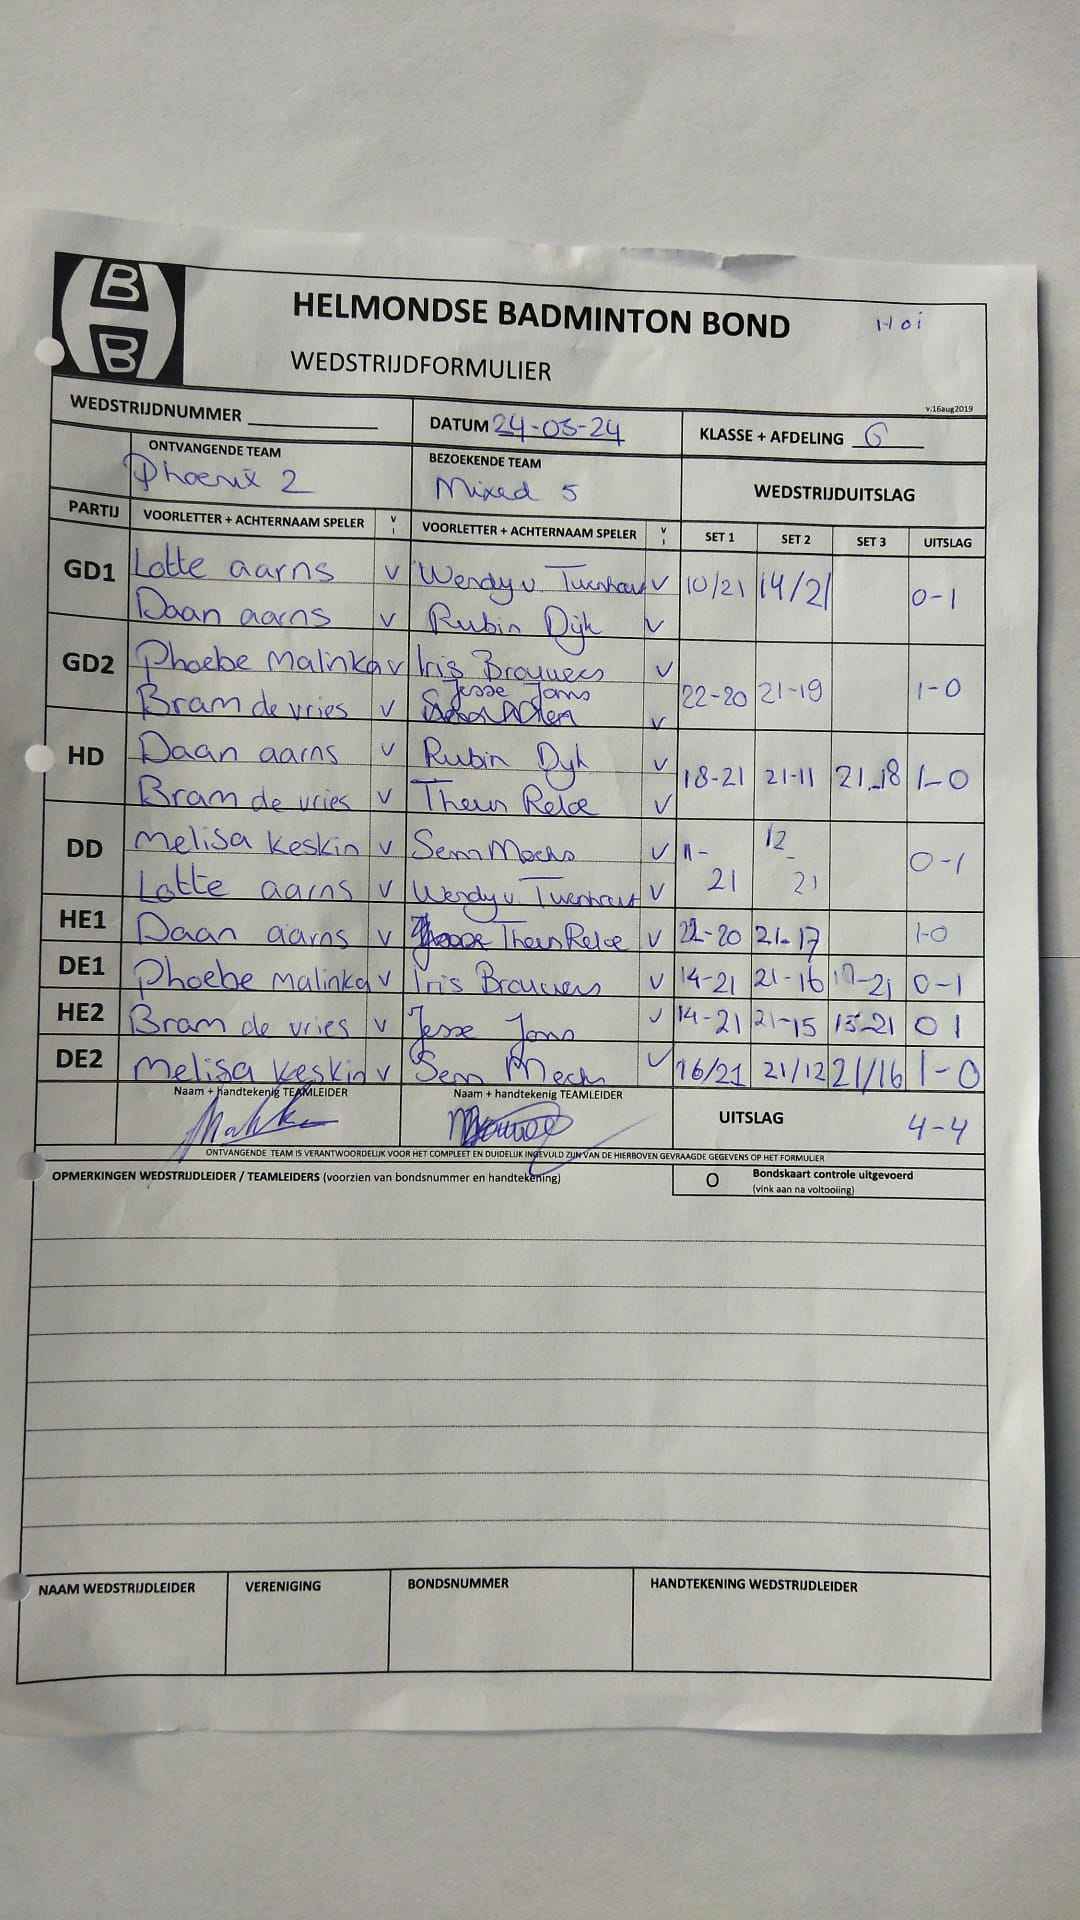 B
B
HELMONDSE BADMINTON BOND
Hoi
WEDSTRIJDFORMULIER
v.16aug2019
WEDSTRIJDNUMMER
DATUM 24-03-24
KLASSE + AFDELING 6
ONTVANGENDE TEAM
Phoenix 2
BEZOEKENDE TEAM
Mixed 5
WEDSTRIJDUITSLAG
PARTIJ VOORLETTER + ACHTERNAAM SPELER V I VOORLETTER + ACHTERNAAM SPELER V I SET 1 SET 2 SET 3 UITSLAG
GD1 Lotte aarns v Wendy v. Turnhout v 10/21 14/21 0-1
Daan aarns v Rubin Dijk v
GD2 Phoebe Malinka v Iris Brouwers v 22-20 21-19 1-0
Bram de vries v Jesse Jans v
HD Daan aarns v Rubin Dyk v 18-21 21-11 21-18 1-0
Bram de vries v Theun Relce v
DD Melisa Keskin v Senn Mechs v 11-21 12-21 0-1
Lotte aarns v Wendy v. Turnhout v
HE1 Daan aarns v Theun Relce v 22-20 21-17 1-0
DE1 Phoebe Malinka v Iris Brouwers v 14-21 21-16 17-21 0-1
HE2 Bram de vries v Jesse Jans v 14-21 21-15 15-21 0 1
DE2 Melisa Keskin v Senn Mechs v 16/21 21/12 21/16 1-0
Naam + handtekenig TEAMLEIDER
Naam + handtekenig TEAMLEIDER
UITSLAG 4-4
ONTVANGENDE TEAM IS VERANTWOORDELIJK VOOR HET COMPLEET EN DUIDELIJK INGEVULD ZIJN VAN DE HIERBOVEN GEVRAAGDE GEGEVENS OP HET FORMULIER
OPMERKINGEN WEDSTRIJDLEIDER / TEAMLEIDERS (voorzien van bondsnummer en handtekening)
O Bondskaart controle uitgevoerd
(vink aan na voltooiing)
NAAM WEDSTRIJDLEIDER VERENIGING BONDSNUMMER HANDTEKENING WEDSTRIJDLEIDER